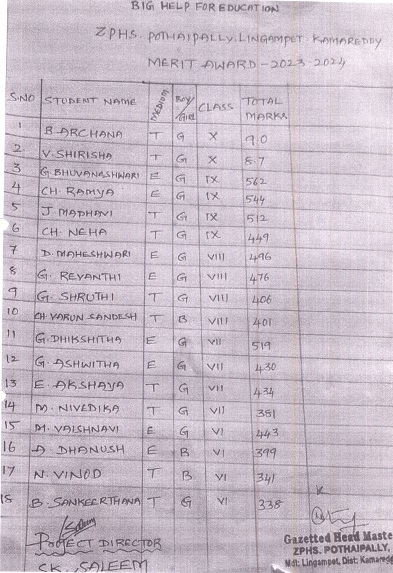 BIG HELP FOR EDUCATION
ZPHS. POTHAIPALLY. LINGAMPET. KAMAREDDY
MERIT AWARD - 2023-2024
S.NO STUDENT NAME MEDIUM Boy/Girl CLASS TOTAL MARKS
1 B. ARCHANA T G X 9.0
2 V. SHIRISHA T G X 8.7
3 G. BHUVANGSHWARI E G IX 562
4 CH. RAMYA E G IX 544
5 J. MADHAVI T G IX 512
6 CH. NEHA T G IX 449
7 D. MAHESHWARI E G VIII 496
8 G. REVANTHI E G VIII 476
9 G. SHRUTHI T G VIII 406
10 CH VARUN SANDESH T B VIII 401
11 G. DHIKSHITHA E G VII 519
12 G. ASHWITHA E G VII 430
13 E. AKSHAYA T G VII 434
14 M. NIVEDIKA T G VII 381
15 M. VAISHNAVI E G VI 443
16 A. DHANUSH E B VI 399
17 N. VINOD T B VI 341
18 B. SANKEERTHANA T G VI 338
PROJECT DIRECTOR
SK. SALEEM
Gazetted Head Maste
ZPHS. POTHAIPALLY,
Mdl: Lingampet, Dist: Kamaredd